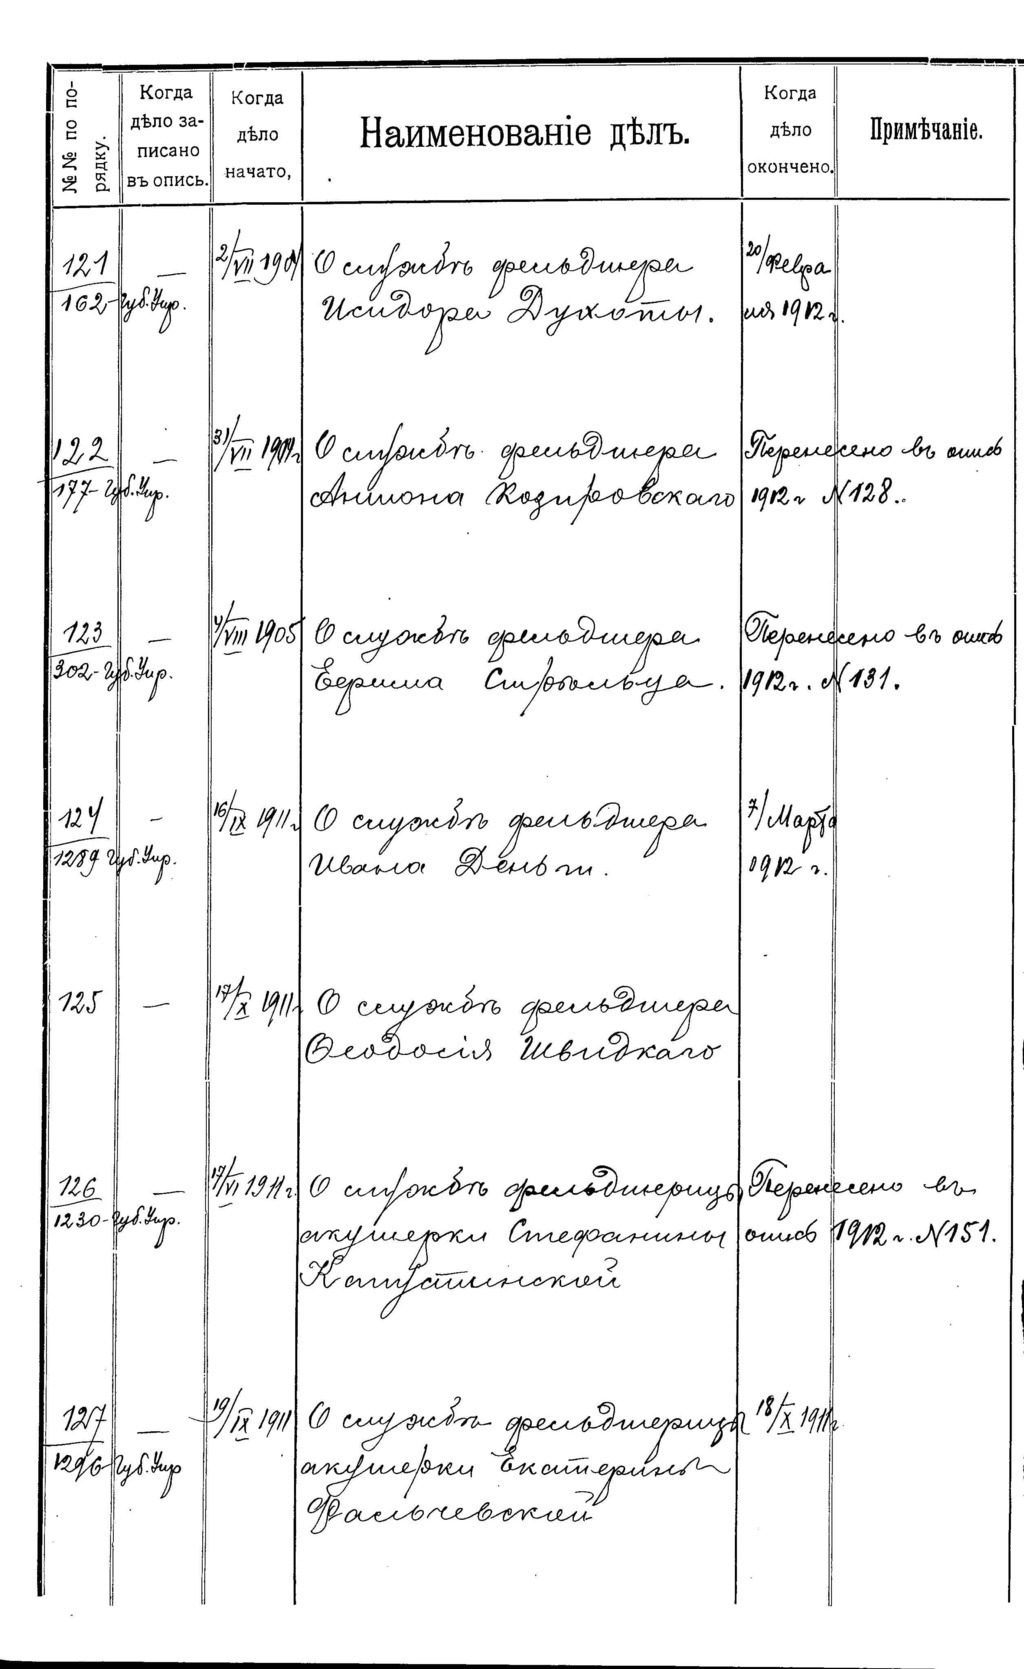 №№ по по-
рядку.
Когда
дѣло за-
писано
въ опись.
Когда
дѣло
начато,
Наименованіе дѣлъ.
Когда
дѣло
окончено.
Примѣчаніе.
121
162-Губ.Упр.
—
2/VII 190
О службѣ фельдшера
Исидора Духоты.
20/Февра
ля 1912 г.
122
177-Губ.Упр.
—
31/VII 1904г
О службѣ фельдшера
Антона Козировскаго
Перенесено въ опись
1912 г N128.
123
302-Губ.Упр.
—
4/VIII 1905
О службѣ фельдшера
Ефрима Стрѣльца.
Перенесено въ опись
1912 г. N131.
124
1289 Губ.Упр.
—
16/IX 1911г
О службѣ фельдшера
Ивана Деньги.
7/Марта
1912 г.
125
—
17/X 1911г
О службѣ фельдшера
Ѳеодосія Швидкаго
126
1230-Губ.Упр.
—
17/VI 1911г
О службѣ фельдшерицы
акушерки Стефанины
Капустинской
Перенесено въ
опись 1912 г. N151.
127
1296 Губ.Упр
—
19/IX 1911
О службѣ фельдшерицы
акушерки Екатерины
Фальчевской
18/X 1911г